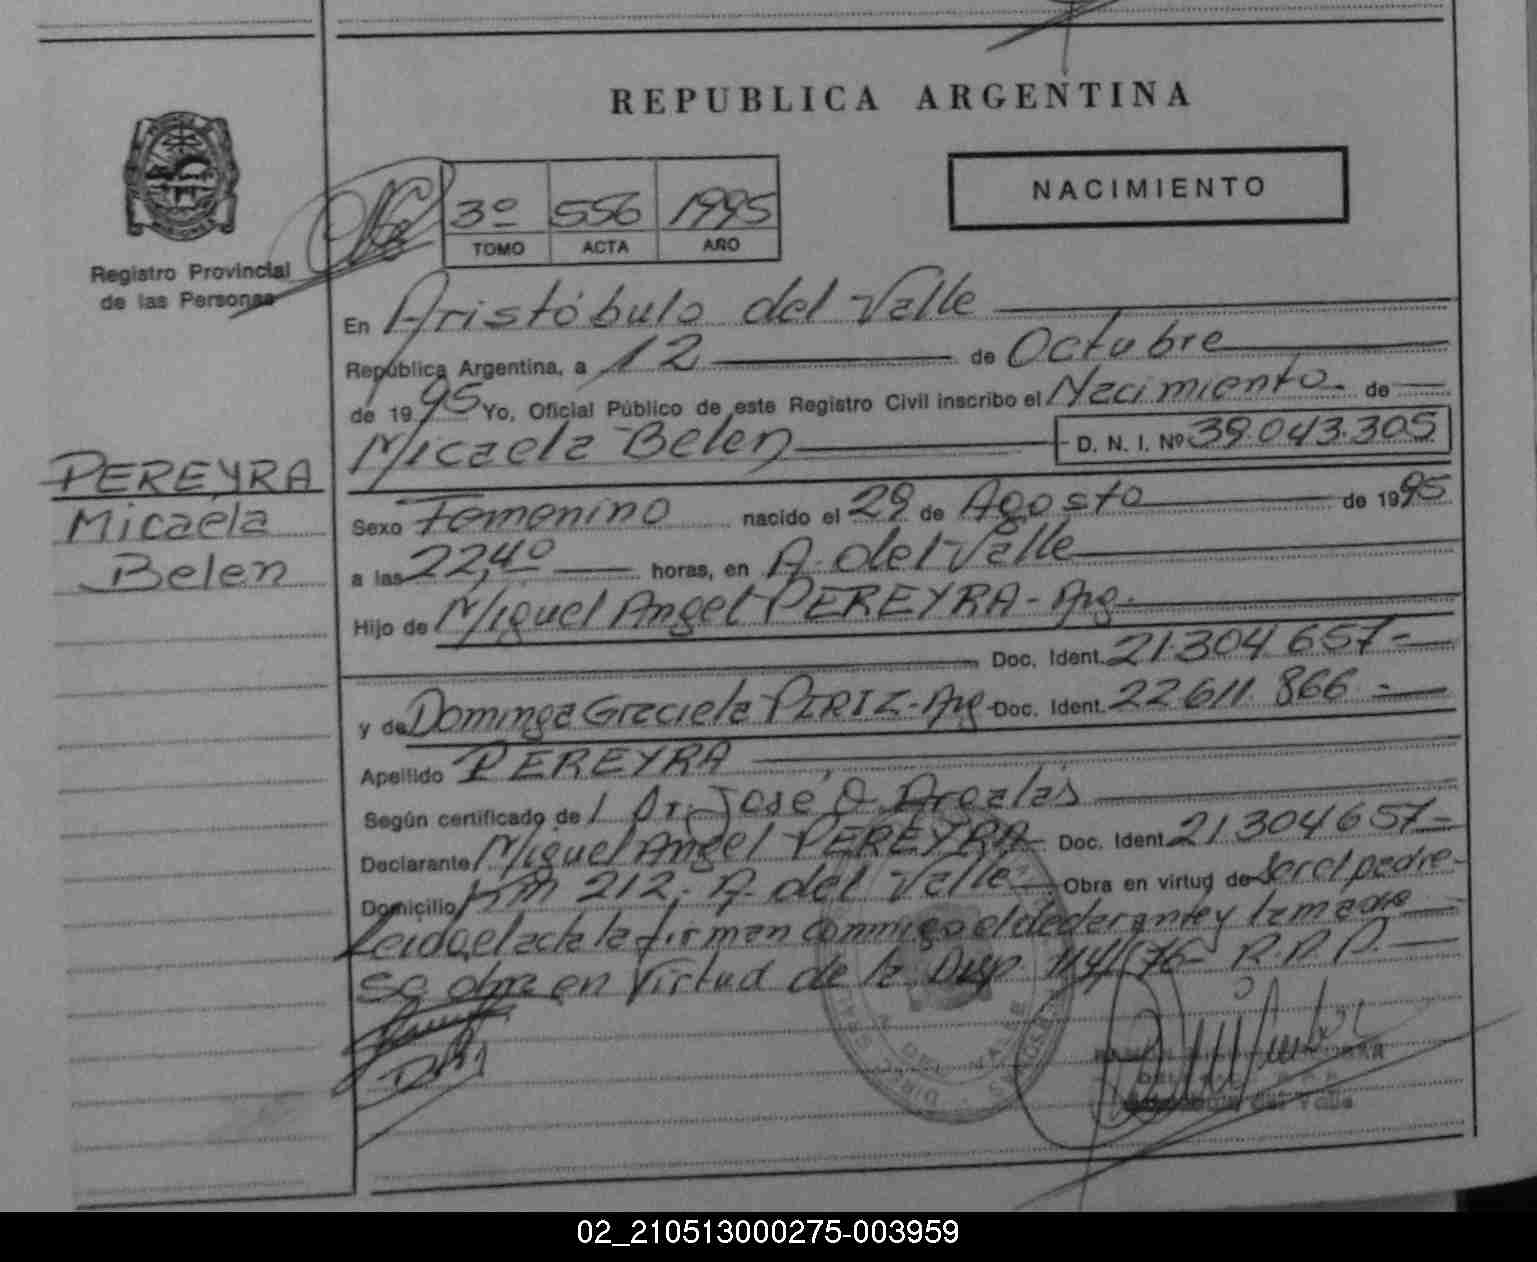 REPUBLICA ARGENTINA
NACIMIENTO
3º 556 1995
TOMO ACTA AÑO
Registro Provincial
de las Personas
En Aristóbulo del Valle
República Argentina, a 12 de Octubre
de 1995 Yo, Oficial Público de este Registro Civil inscribo el Nacimiento de
Micaela Belen D. N. I. Nº 39.043.305
PEREYRA
Micaela
Belen
Sexo Femenino nacido el 29 de Agosto de 1995
a las 22,40 horas, en A. del Valle
Hijo de Miguel Angel PEREYRA - Arg.
Doc. Ident. 21.304.657-
y de Dominga Graciela PIRIZ - Arg - Doc. Ident. 22.611.866 -
Apellido PEREYRA
Según certificado de Dr. José O.
Declarante Miguel Angel PEREYRA Doc. Ident. 21304657-
Domicilio Km 212 - A. del Valle Obra en virtud de Ser el padre-
Leida el acta la firman conmigo el declarante y la madre
se obra en Virtud de la Disp. 114/76- R.P.P.
DEL VALLE
del Valle
02_210513000275-003959